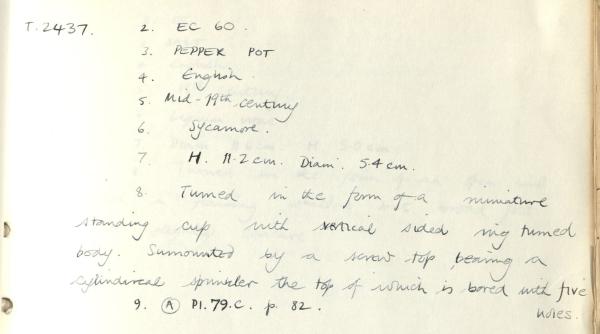 T.2437. 2. EC 60.
3. PEPPER POT
4. English.
5. Mid-19th century
6. Sycamore.
7. H. 11.2cm. Diam. 5.4cm.
8. Turned in the form of a miniature
standing cup with vertical sided ring turned
body. Surmounted by a screw top bearing a
cylindircal sprinkler the top of which is bored with five
holes.
9. (A) Pl.79.C. p. 82.